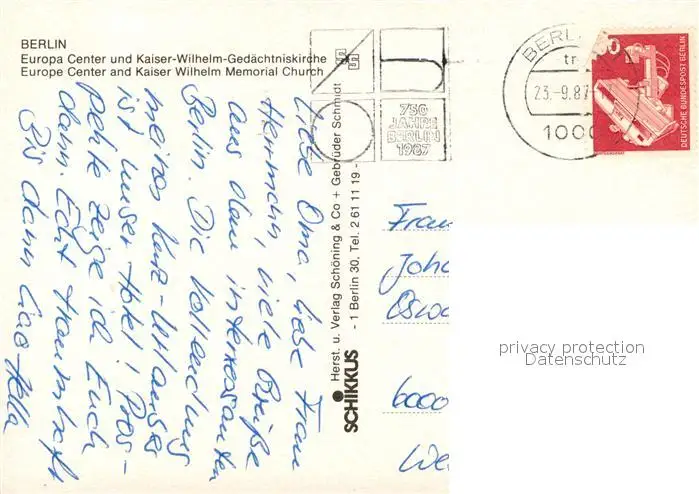 BERLIN
Europa Center und Kaiser-Wilhelm-Gedächtniskirche
Europe Center and Kaiser Wilhelm Memorial Church
Liebe Oma, liebe Frau
Herrmann, viele Grüße
aus dem interessanten
Berlin. Die Vollendung
meines Kurz-Urlaubes
ist unser Hotel! Pros-
pekte zeige ich Euch
dann. Echt traumhaft
Bis dann Ciao-
SCHIKKUS
Herst. u. Verlag Schöning & Co + Gebrüder Schmidt
- 1 Berlin 30, Tel. 2 61 11 19 -
750
JAHRE
BERLIN
1987
BERL
23.-9.87
1000
DEUTSCHE BUNDESPOST BERLIN
Frau
Joh
Osw
6000
We
privacy protection
Datenschutz